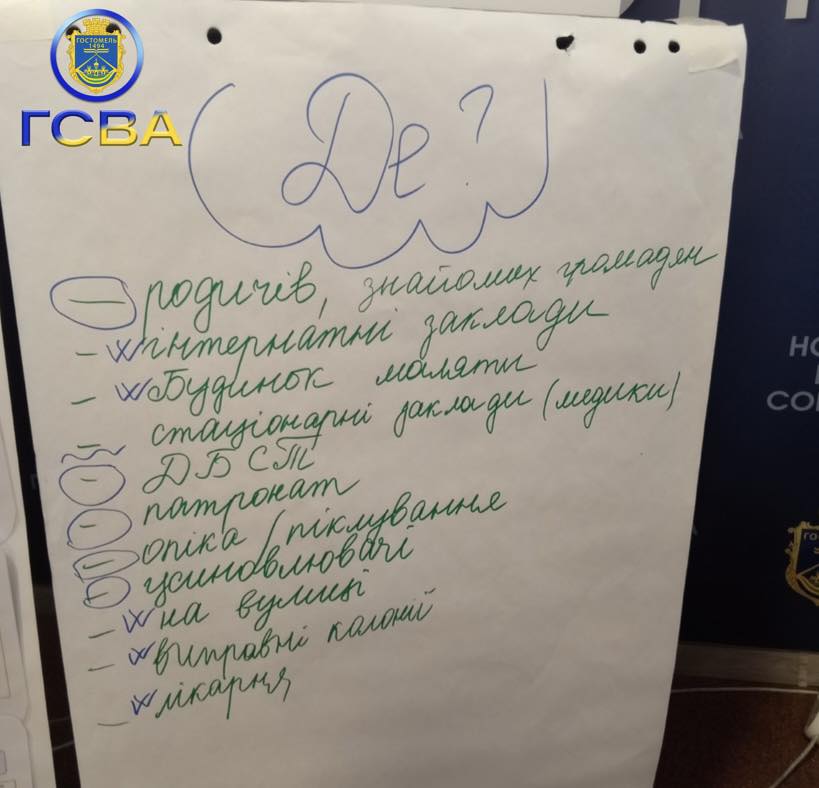 ГОСТОМЕЛЬ
1494
ГСВА
Де?
— родичів, знайомих громадян
— інтернатні заклади
— Будинок маляти
— стаціонарні заклади (медики)
— ДБСТ
— патронат
— опіка / піклування
— усиновлювачі
— на вулиці
— виправні колонії
— лікарня
НО
СО
ГО